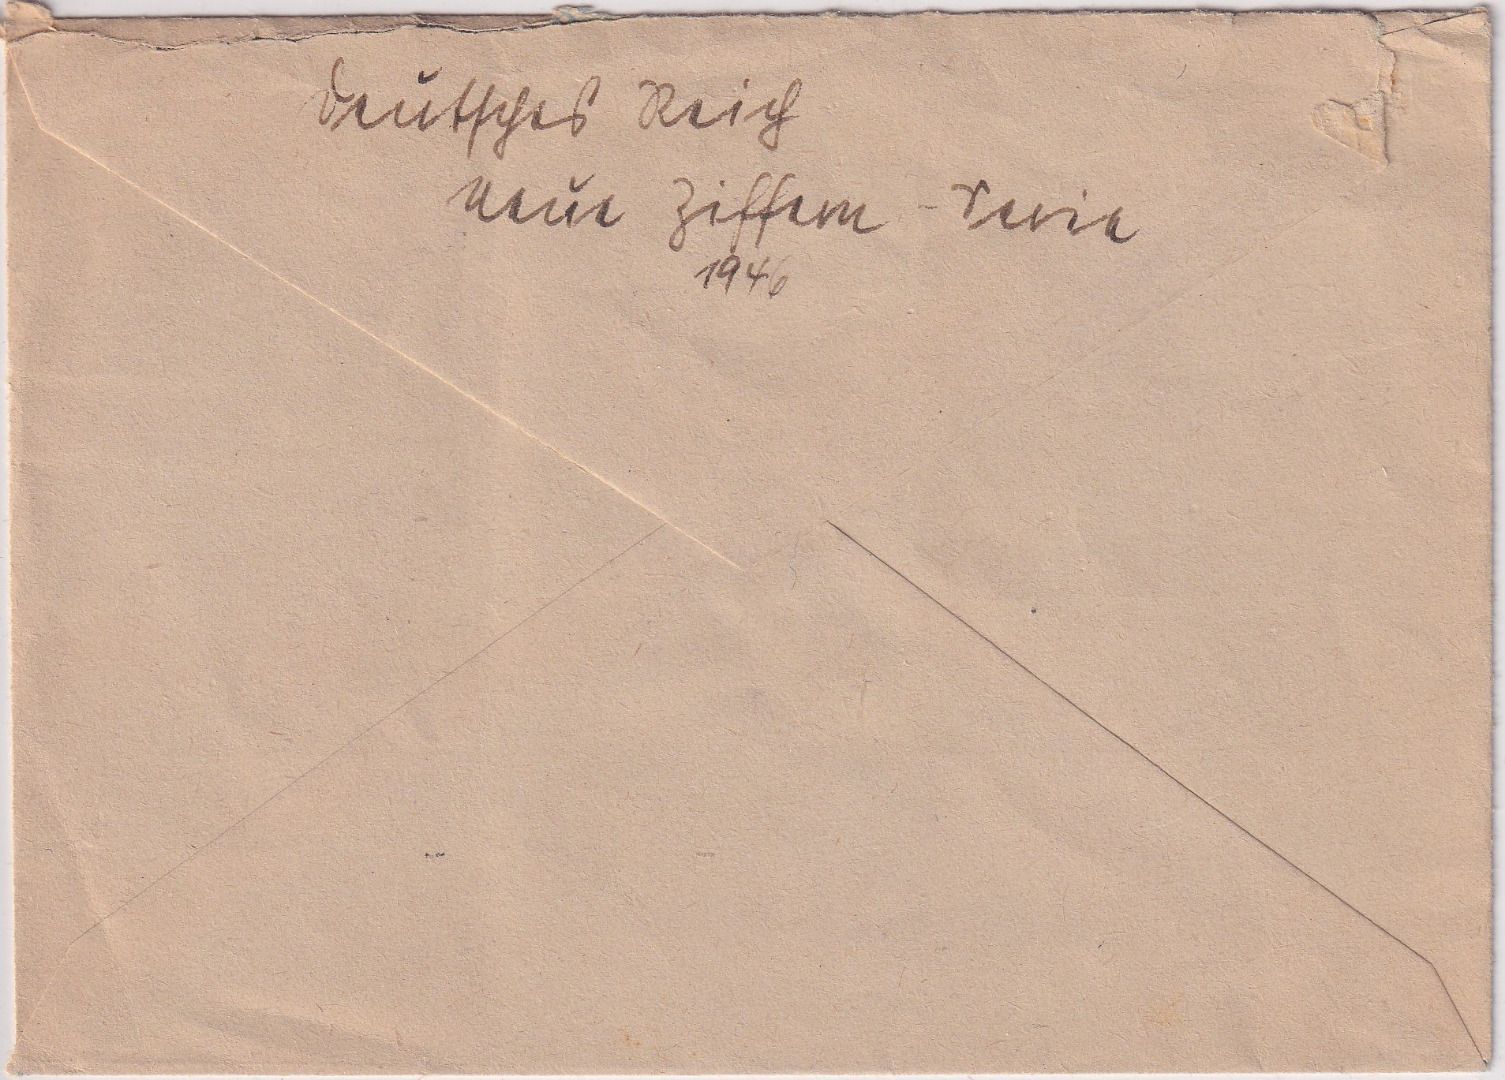 Deutsches Reich
neue Ziffern - Serie
1946